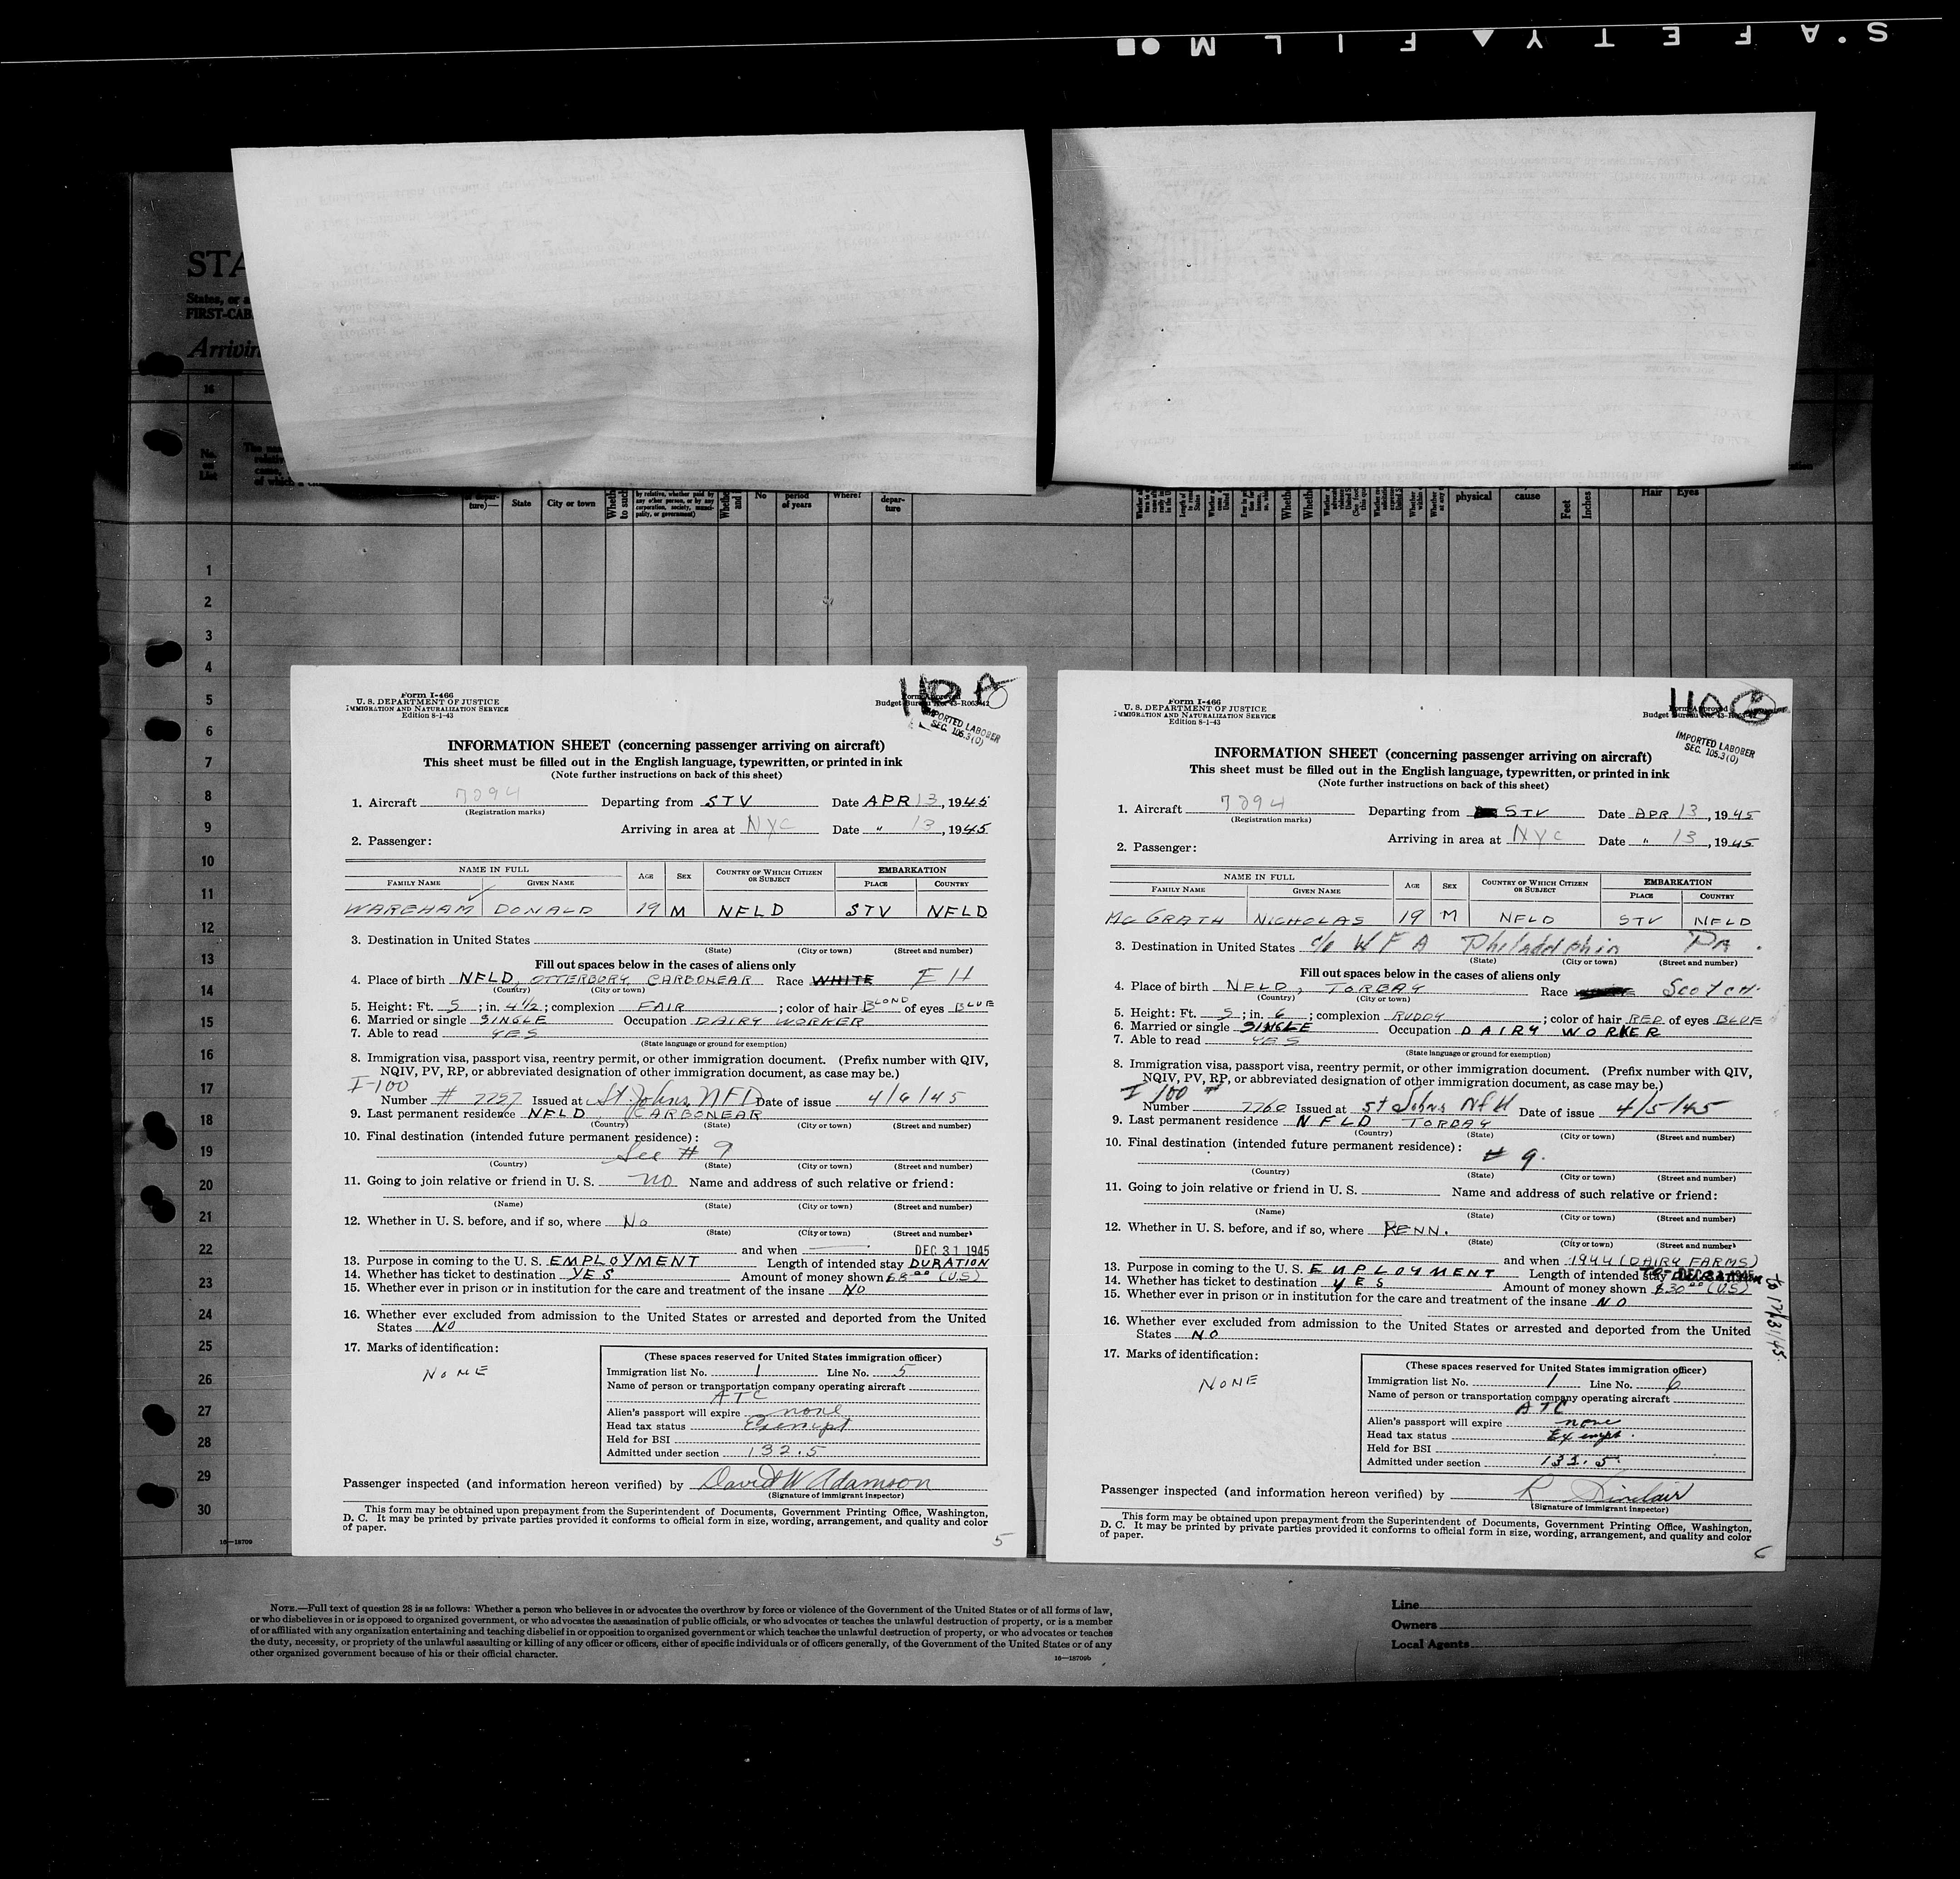 S·AFETY▲FILM●■
STA
States, or a
FIRST-CAB
Arrivin
16
No.
on
List
State
City or town
No
period
of years
Where?
depar-
ture
physical
cause
Feet
Inches
Hair
Eyes
1
2
3
4
5
6
7
8
9
10
11
12
13
14
15
16
17
18
19
20
21
22
23
24
25
26
27
28
29
30
16—18709
Form I-466
U. S. DEPARTMENT OF JUSTICE
IMMIGRATION AND NATURALIZATION SERVICE
Edition 8-1-43
Form Approved
Budget Bureau No. 43-R063-42
IMPORTED LABORER
SEC. 105.3 (O)
INFORMATION SHEET (concerning passenger arriving on aircraft)
This sheet must be filled out in the English language, typewritten, or printed in ink
(Note further instructions on back of this sheet)
1. Aircraft 7294 Departing from STV Date APR 13, 1945
(Registration marks)
Arriving in area at NYC Date " 13, 1945
2. Passenger:
NAME IN FULL AGE SEX COUNTRY OF WHICH CITIZEN OR SUBJECT EMBARKATION
FAMILY NAME GIVEN NAME PLACE COUNTRY
WAREHAM DONALD 19 M NFLD STV NFLD
3. Destination in United States
(State) (City or town) (Street and number)
Fill out spaces below in the cases of aliens only
4. Place of birth NFLD, OTTERBURY, CARBONEAR Race WHITE EH
(Country) (City or town)
5. Height: Ft. 5; in. 4½; complexion FAIR; color of hair BLOND of eyes BLUE
6. Married or single SINGLE Occupation DAIRY WORKER
7. Able to read YES
(State language or ground for exemption)
8. Immigration visa, passport visa, reentry permit, or other immigration document. (Prefix number with QIV,
NQIV, PV, RP, or abbreviated designation of other immigration document, as case may be.)
I-100
Number # 7257 Issued at St. Johns, NFD Date of issue 4/6/45
9. Last permanent residence NFLD CARBONEAR
(Country) (State) (City or town) (Street and number)
10. Final destination (intended future permanent residence):
See # 9
(Country) (State) (City or town) (Street and number)
11. Going to join relative or friend in U. S. no Name and address of such relative or friend:
(Name) (State) (City or town) (Street and number)
12. Whether in U. S. before, and if so, where No
(State) (City or town) (Street and number)
and when DEC 31 1945
13. Purpose in coming to the U. S. EMPLOYMENT Length of intended stay DURATION
14. Whether has ticket to destination YES Amount of money shown 68.00 (U.S)
15. Whether ever in prison or in institution for the care and treatment of the insane NO
16. Whether ever excluded from admission to the United States or arrested and deported from the United
States NO
17. Marks of identification:
NONE
(These spaces reserved for United States immigration officer)
Immigration list No. 1 Line No. 5
Name of person or transportation company operating aircraft
ATC
Alien's passport will expire none
Head tax status Exempt
Held for BSI
Admitted under section 132.5
Passenger inspected (and information hereon verified) by David W Adamson
(Signature of immigrant inspector)
This form may be obtained upon prepayment from the Superintendent of Documents, Government Printing Office, Washington,
D. C. It may be printed by private parties provided it conforms to official form in size, wording, arrangement, and quality and color
of paper.
5
Form I-466
U. S. DEPARTMENT OF JUSTICE
IMMIGRATION AND NATURALIZATION SERVICE
Edition 8-1-43
Form Approved
Budget Bureau No. 43-R
IMPORTED LABORER
SEC. 105.3 (O)
INFORMATION SHEET (concerning passenger arriving on aircraft)
This sheet must be filled out in the English language, typewritten, or printed in ink
(Note further instructions on back of this sheet)
1. Aircraft 7294 Departing from STV Date APR 13, 1945
(Registration marks)
Arriving in area at NYC Date " 13, 1945
2. Passenger:
NAME IN FULL AGE SEX COUNTRY OF WHICH CITIZEN OR SUBJECT EMBARKATION
FAMILY NAME GIVEN NAME PLACE COUNTRY
Mc GRATH NICHOLAS 19 M NFLD STV NFLD
3. Destination in United States c/o W F A Philadelphia Pa.
(State) (City or town) (Street and number)
Fill out spaces below in the cases of aliens only
4. Place of birth NFLD, TORBAY Race Scotch.
(Country) (City or town)
5. Height: Ft. 5; in. 6; complexion RUDDY; color of hair RED of eyes BLUE
6. Married or single SINGLE Occupation DAIRY WORKER
7. Able to read YES
(State language or ground for exemption)
8. Immigration visa, passport visa, reentry permit, or other immigration document. (Prefix number with QIV,
NQIV, PV, RP, or abbreviated designation of other immigration document, as case may be.)
I 100 #
Number 7760 Issued at St Johns Nfld Date of issue 4/5/45
9. Last permanent residence NFLD TORBAY
(Country) (State) (City or town) (Street and number)
10. Final destination (intended future permanent residence):
# 9.
(Country) (State) (City or town) (Street and number)
11. Going to join relative or friend in U. S. Name and address of such relative or friend:
(Name) (State) (City or town) (Street and number)
12. Whether in U. S. before, and if so, where PENN.
(State) (City or town) (Street and number)
and when 1944 (DAIRY FARMS)
13. Purpose in coming to the U. S. EMPLOYMENT Length of intended stay TO DEC 31 1945
14. Whether has ticket to destination YES Amount of money shown $30.00 (U.S)
15. Whether ever in prison or in institution for the care and treatment of the insane NO
to 12/31/45.
16. Whether ever excluded from admission to the United States or arrested and deported from the United
States NO
17. Marks of identification:
NONE
(These spaces reserved for United States immigration officer)
Immigration list No. 1 Line No. 6
Name of person or transportation company operating aircraft
ATC
Alien's passport will expire none
Head tax status Exempt.
Held for BSI
Admitted under section 132.5
Passenger inspected (and information hereon verified) by R Sinclair
(Signature of immigrant inspector)
This form may be obtained upon prepayment from the Superintendent of Documents, Government Printing Office, Washington,
D. C. It may be printed by private parties provided it conforms to official form in size, wording, arrangement, and quality and color
of paper.
6
NOTE.—Full text of question 28 is as follows: Whether a person who believes in or advocates the overthrow by force or violence of the Government of the United States or of all forms of law,
or who disbelieves in or is opposed to organized government, or who advocates the assassination of public officials, or who advocates or teaches the unlawful destruction of property, or is a member
of or affiliated with any organization entertaining and teaching disbelief in or opposition to organized government or which teaches the unlawful destruction of property, or who advocates or teaches
the duty, necessity, or propriety of the unlawful assaulting or killing of any officer or officers, either of specific individuals or of officers generally, of the Government of the United States or of any
other organized government because of his or their official character.
16—18709b
Line
Owners
Local Agents